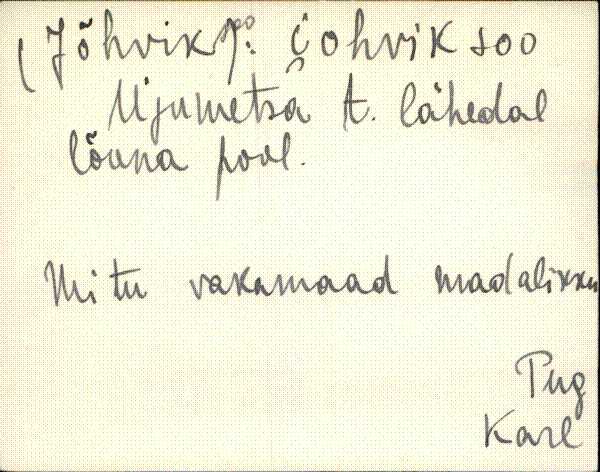 (Jõhviksoo): i̮ohviksoo
Ujumetsa t. lähedal
lõuna pool.
Mitu vakamaad madalikku
Pug
Karl